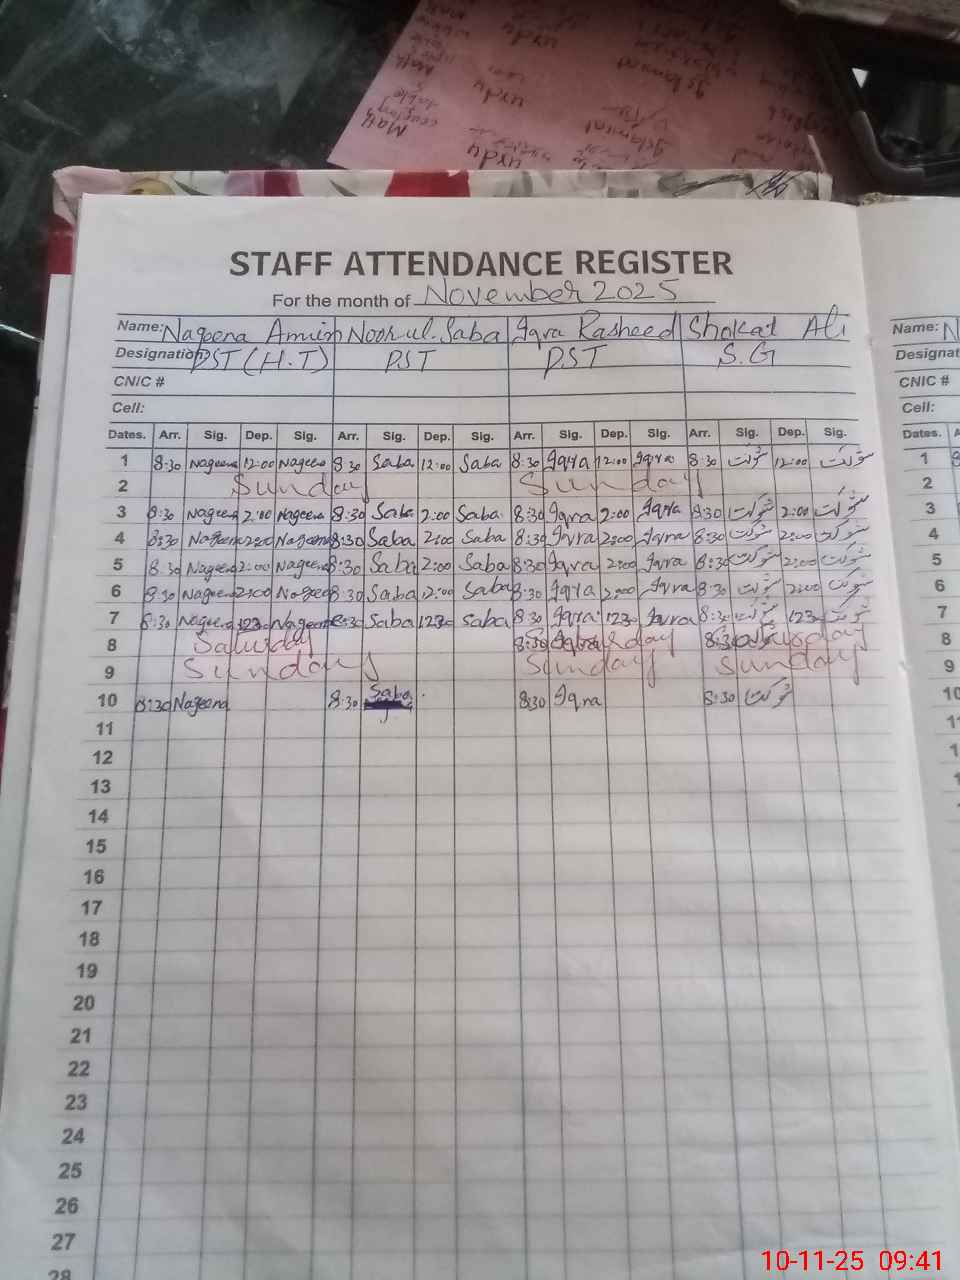 STAFF ATTENDANCE REGISTER
For the month of November 2025
Name: Nageena Amin Noor ul Saba Iqra Rasheed Shokat Ali Name: N
Designation PST (H.T) PST PST S.G Designat
CNIC # CNIC #
Cell: Cell:
Dates. Arr. Sig. Dep. Sig. Arr. Sig. Dep. Sig. Arr. Sig. Dep. Sig. Arr. Sig. Dep. Sig. Dates. A
1 8:30 Nageena 12:00 Nageena 8:30 Saba 12:00 Saba 8:30 Iqra 12:00 Iqra 8:30 شوکت 12:00 شوکت 1
2 Sunday Sunday 2
3 8:30 Nageena 2:00 Nageena 8:30 Saba 2:00 Saba 8:30 Iqra 2:00 Iqra 8:30 شوکت 2:00 شوکت 3
4 8:30 Nageena 2:00 Nageena 8:30 Saba 2:00 Saba 8:30 Iqra 2:00 Iqra 8:30 شوکت 2:00 شوکت 4
5 8:30 Nageena 2:00 Nageena 8:30 Saba 2:00 Saba 8:30 Iqra 2:00 Iqra 8:30 شوکت 2:00 شوکت 5
6 8:30 Nageena 2:00 Nageena 8:30 Saba 2:00 Saba 8:30 Iqra 2:00 Iqra 8:30 شوکت 2:00 شوکت 6
7 8:30 Nageena 1230 Nageena 8:30 Saba 1230 Saba 8:30 Iqra 1230 Iqra 8:30 شوکت 1230 شوکت 7
8 Saturday 8:30 8:30 8
9 Sunday Sunday Sunday 9
10 8:30 Nageena 8:30 Saba 8:30 Iqra 8:30 شوکت 10
11
12
13
14
15
16
17
18
19
20
21
22
23
24
25
26
27
28
10-11-25 09:41